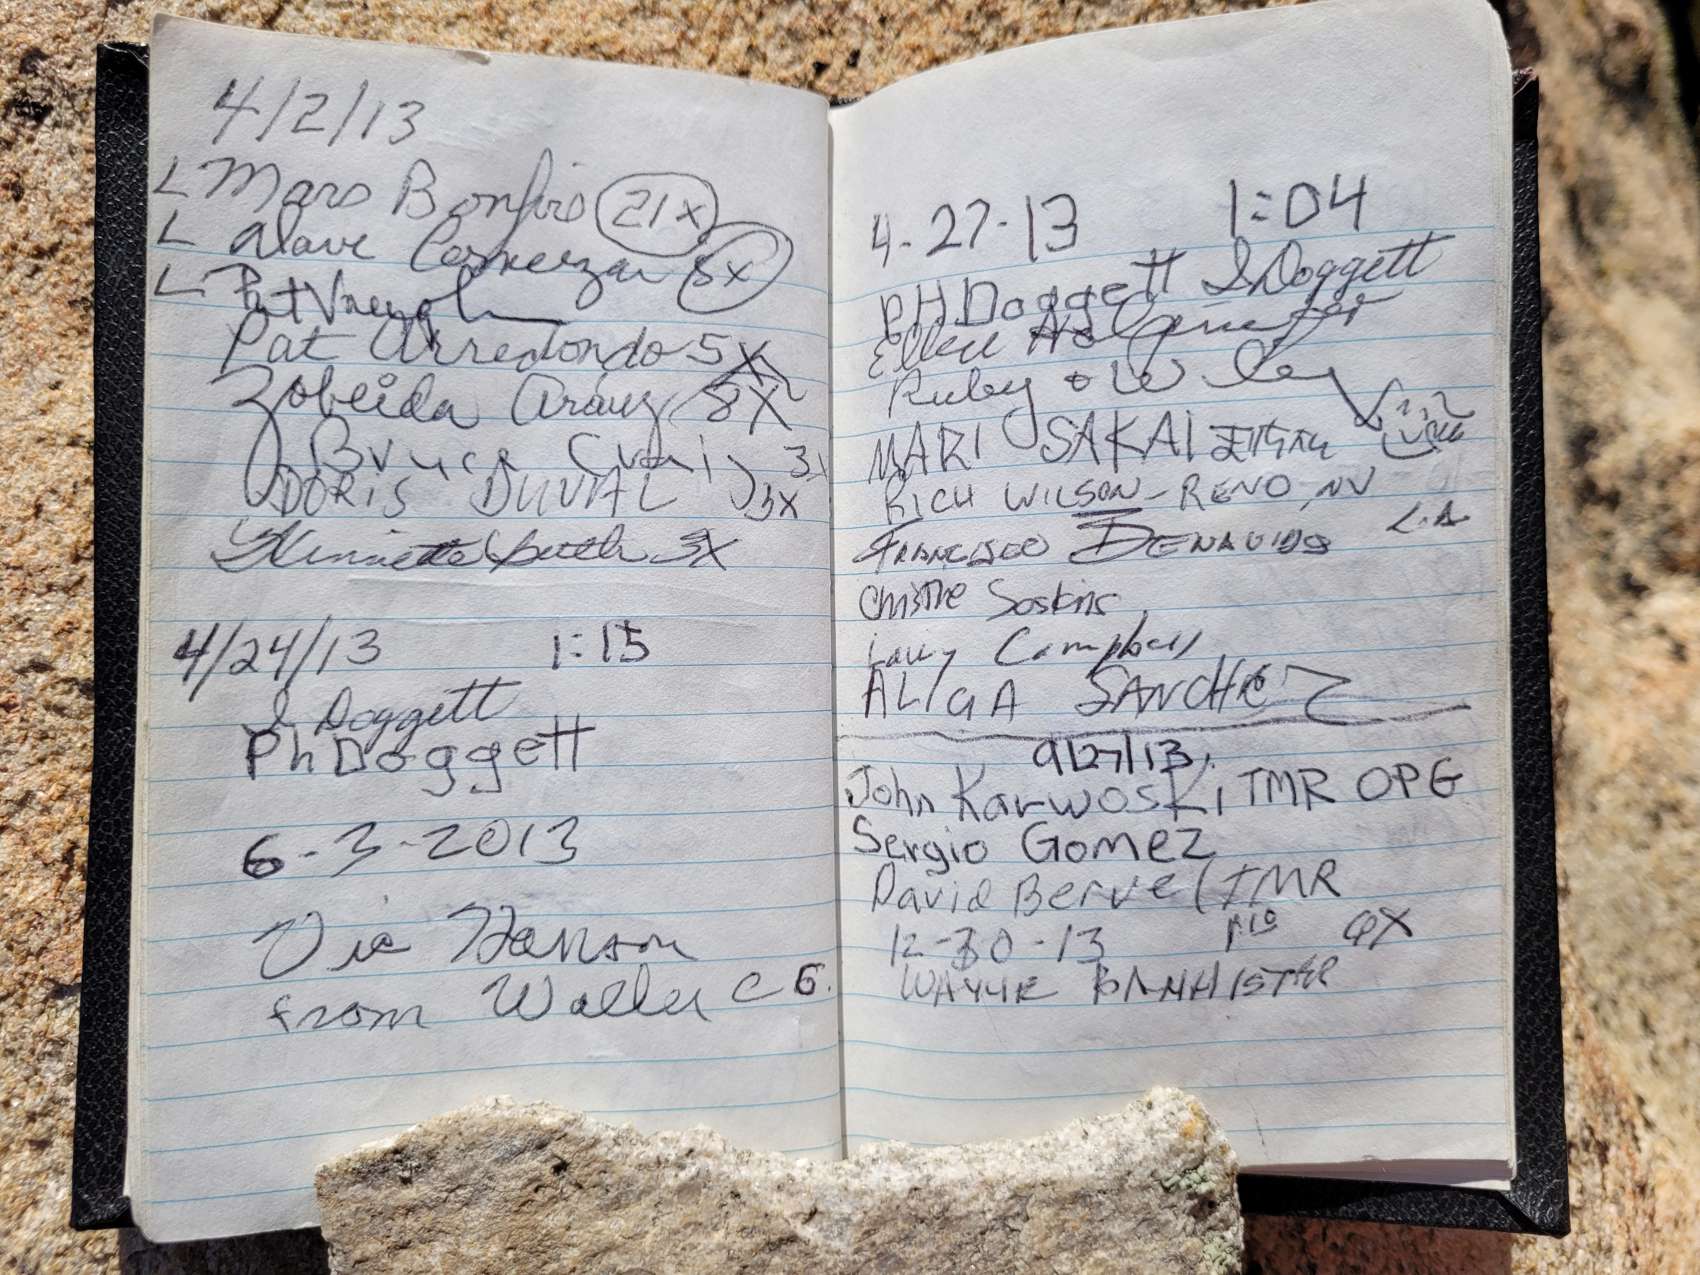 4/2/13
L Mars Bonfiro 21x
L Dave Comerzan 5x
L Pat
Pat Arredondo 5X
Zobeida Arauz 8X
Bruce Craig 3x
DORIS DUVAL 3x
Henriette 3X
4/24/13 1:15
S Doggett
Ph Doggett
6-3-2013
Vic Hanson
from Waller C G.
4-27-13 1:04
PH Doggett S Doggett
Ellen
Ruby & Wiley
MARI SAKAI
RICH WILSON - RENO, NV
FRANCISCO BENAVIDES L.A
Christine Soskins
Larry Campbell
ALIGA SANCHEZ
9/27/13
John Karwoski TMR OPG
Sergio Gomez
David Bervel TMR
12-30-13
WAYNE BANNISTER